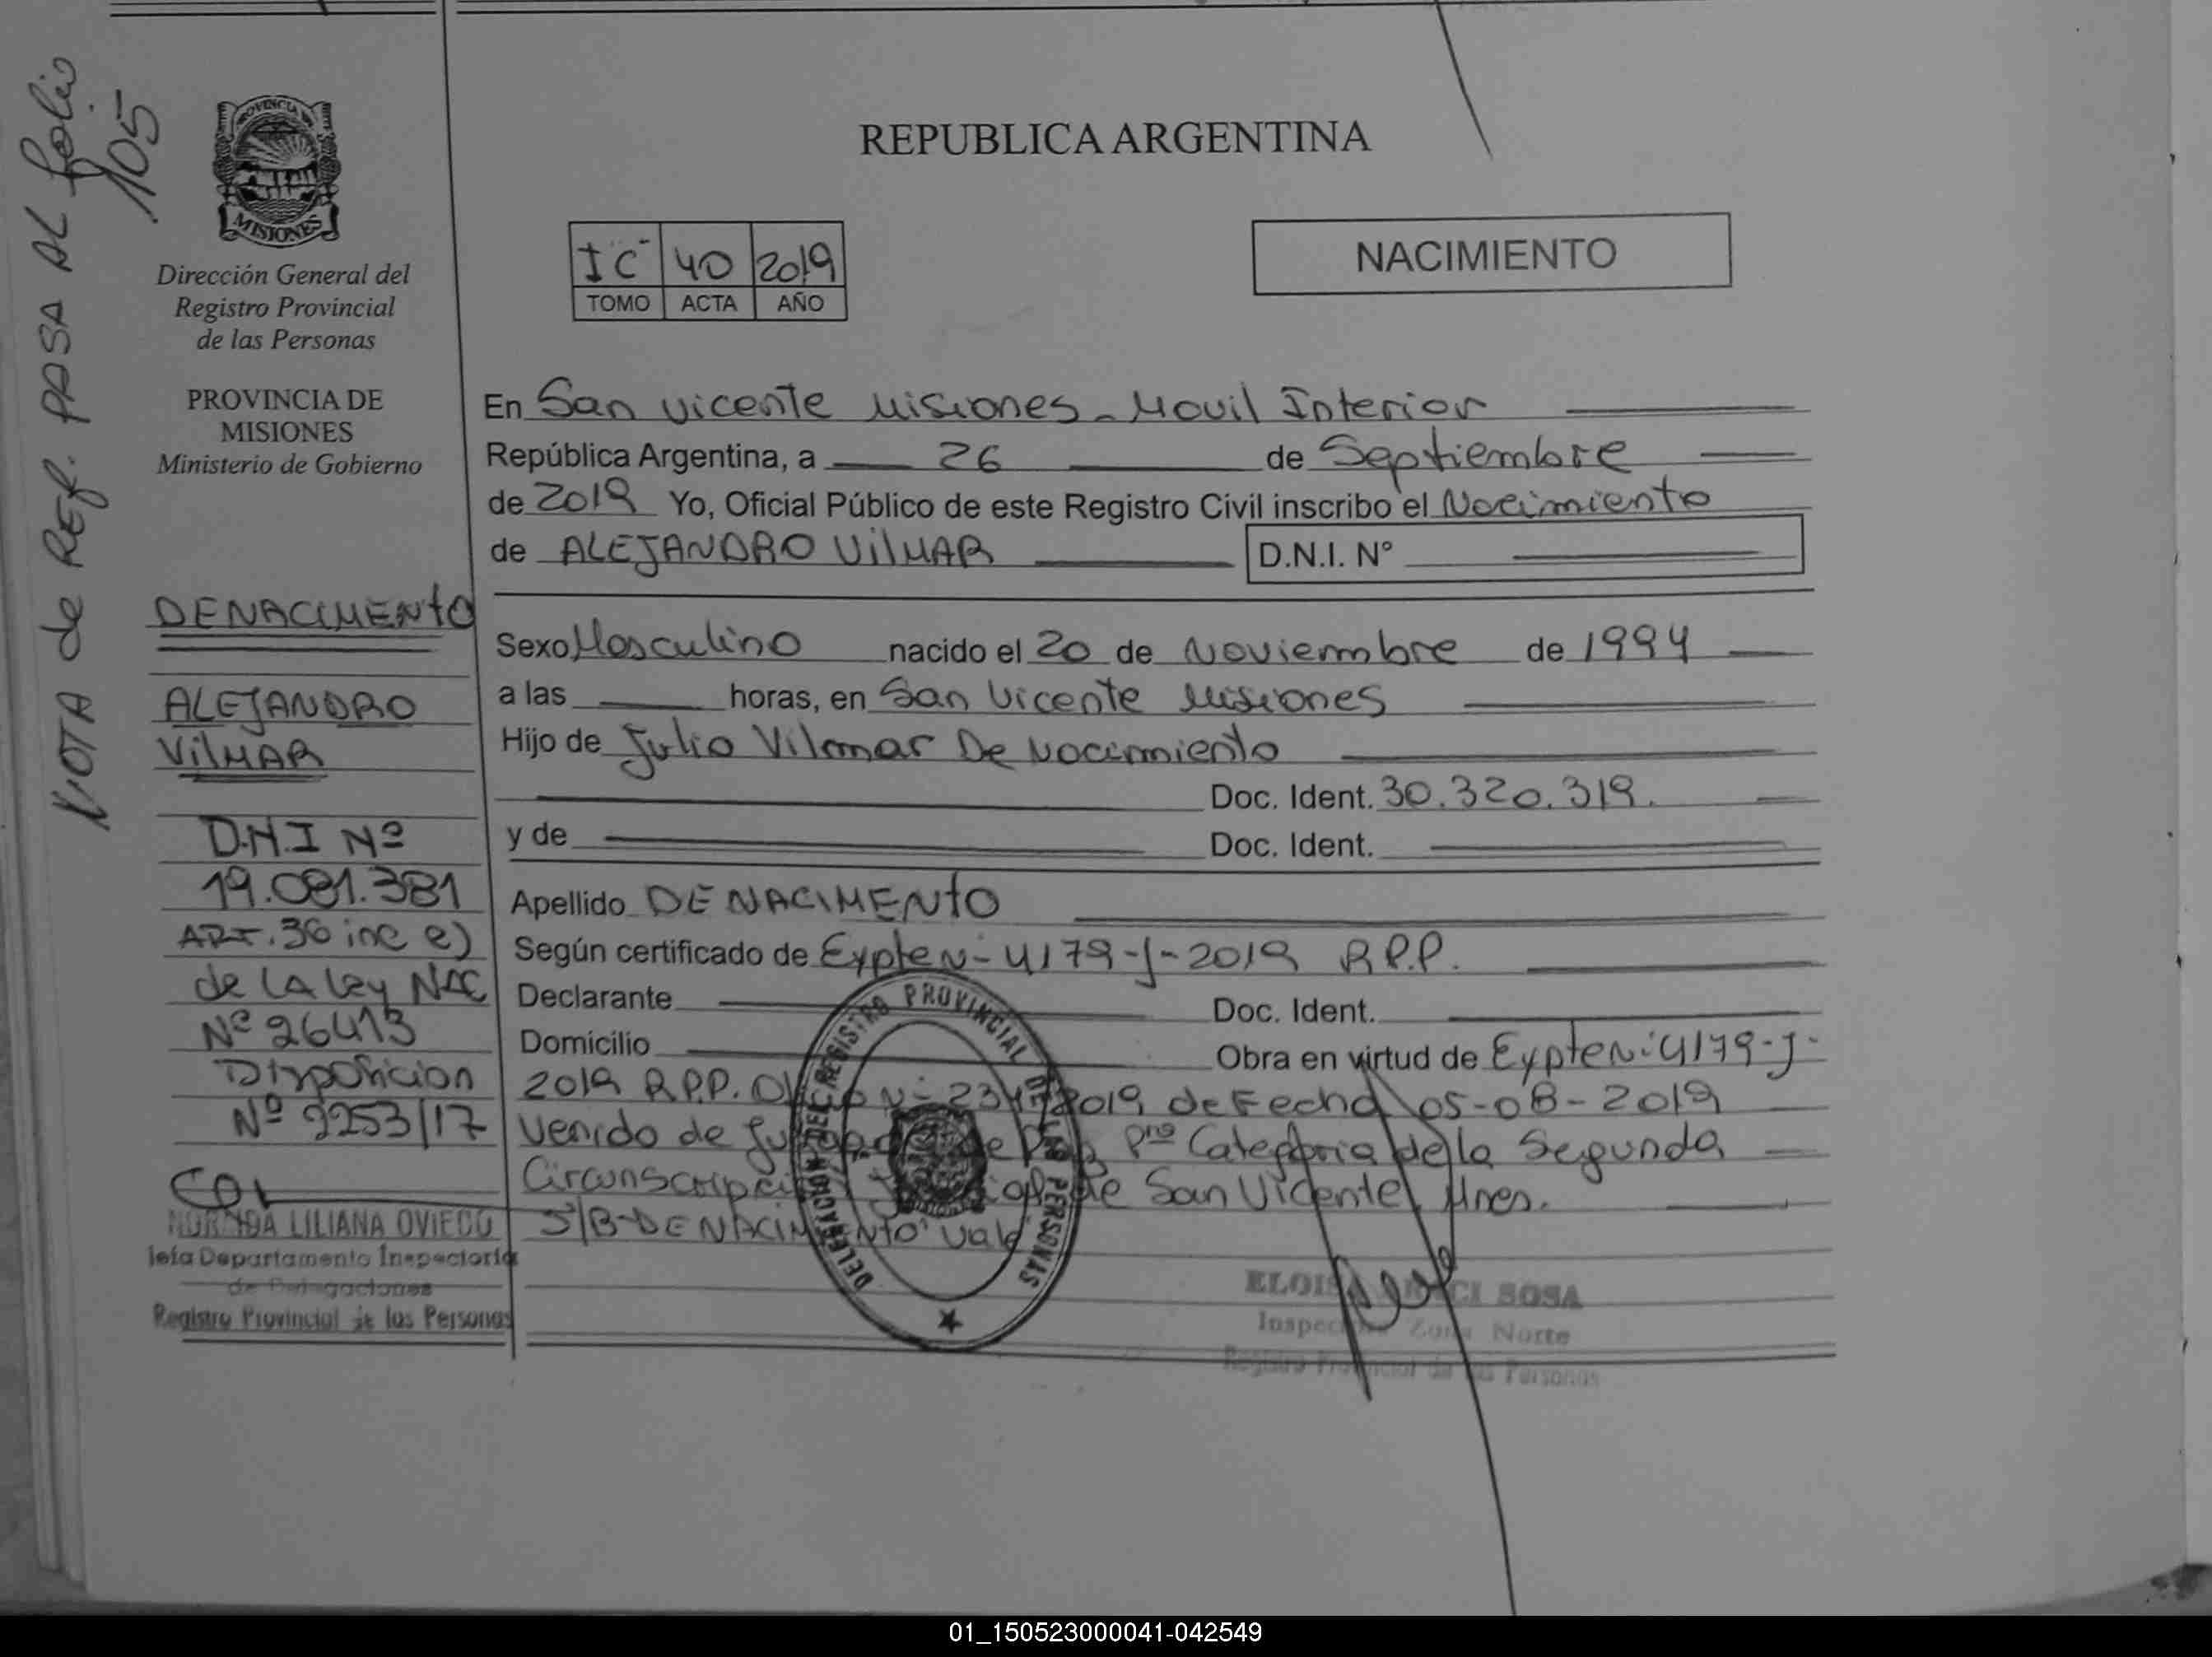 NOTA de REF. PASA AL folio
105
PROVINCIA
MISIONES
Dirección General del
Registro Provincial
de las Personas
PROVINCIA DE
MISIONES
Ministerio de Gobierno
DENACIMENTO
ALEJANDRO
VilMAR
D.N.I Nº
19.081.381
ART. 36 inc e)
de LA Ley NAC
Nº 26413
Disposicion
Nº 2253/17
LILIANA OVIEDO
Jefa Departamento Inspectoria
de Delegaciones
Registro Provincial de las Personas
REPUBLICA ARGENTINA
IC 40 2019
TOMO ACTA AÑO
NACIMIENTO
En San Vicente Misiones - Movil Interior
República Argentina, a 26 de Septiembre
de 2019 Yo, Oficial Público de este Registro Civil inscribo el Nacimiento
de ALEJANDRO VilMAR D.N.I. N°
Sexo Masculino nacido el 20 de Noviembre de 1994
a las horas, en San Vicente Misiones
Hijo de Julio Vilmar De Nacimiento
Doc. Ident. 30.320.319.
y de Doc. Ident.
Apellido DE NACIMENTO
Según certificado de Expte N- 4179-J-2019 R.P.P.
Declarante Doc. Ident.
Domicilio Obra en virtud de Expte N: 4179-J-
2019 R.P.P. 2019 de Fecha 05-08-2019
Venido de Pra Categoria de la Segunda
San Vicente, Mnes.
S/B-DE NACIMENTO Vale
DELEGACION DEL REGISTRO PROVINCIAL DE LAS PERSONAS
SOSA
Zona Norte
Registro Provincial de las Personas
01_150523000041-042549